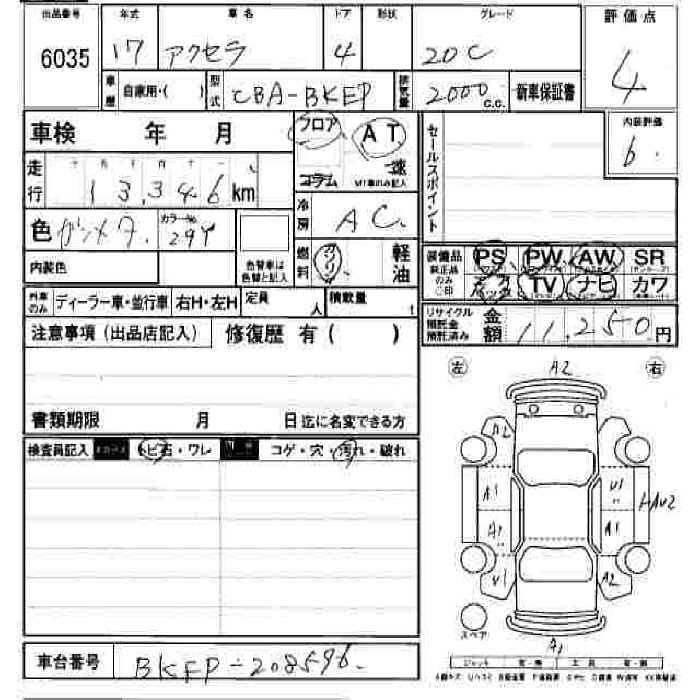 出品番号 年式 車名 ドア 形状 グレード 評価点
6035 17 アクセラ 4 20C 4
車歴 自家用・( ) 型式 CBA-BKEP 排気量 2000 c.c. 新車保証書
車検 年 月 フロア AT セールスポイント 内装評価
走行 13,346 km コラム 速 6
色 ガンメタ カラーNo 29Y 冷房 AC
内装色 色替車は色替と記入 燃料 ガソリン 軽油
装備品 純正品のみ○印 PS PW AW SR
TV ナビ カワ
外車のみ ディーラー車・並行車 右H・左H 定員 人 積載量 t
リサイクル預託金預託済み 金額 11,250円
注意事項(出品店記入) 修復歴 有( )
左 A2 右
書類期限 月 日迄に名変できる方
検査員記入 トビ石・ワレ コゲ・穴・汚れ・破れ
A2
A1 U1 HAU2
A1 A1
U1 A2
スペア
A1
車台番号 BKEP-208596
ジャッキ 工具